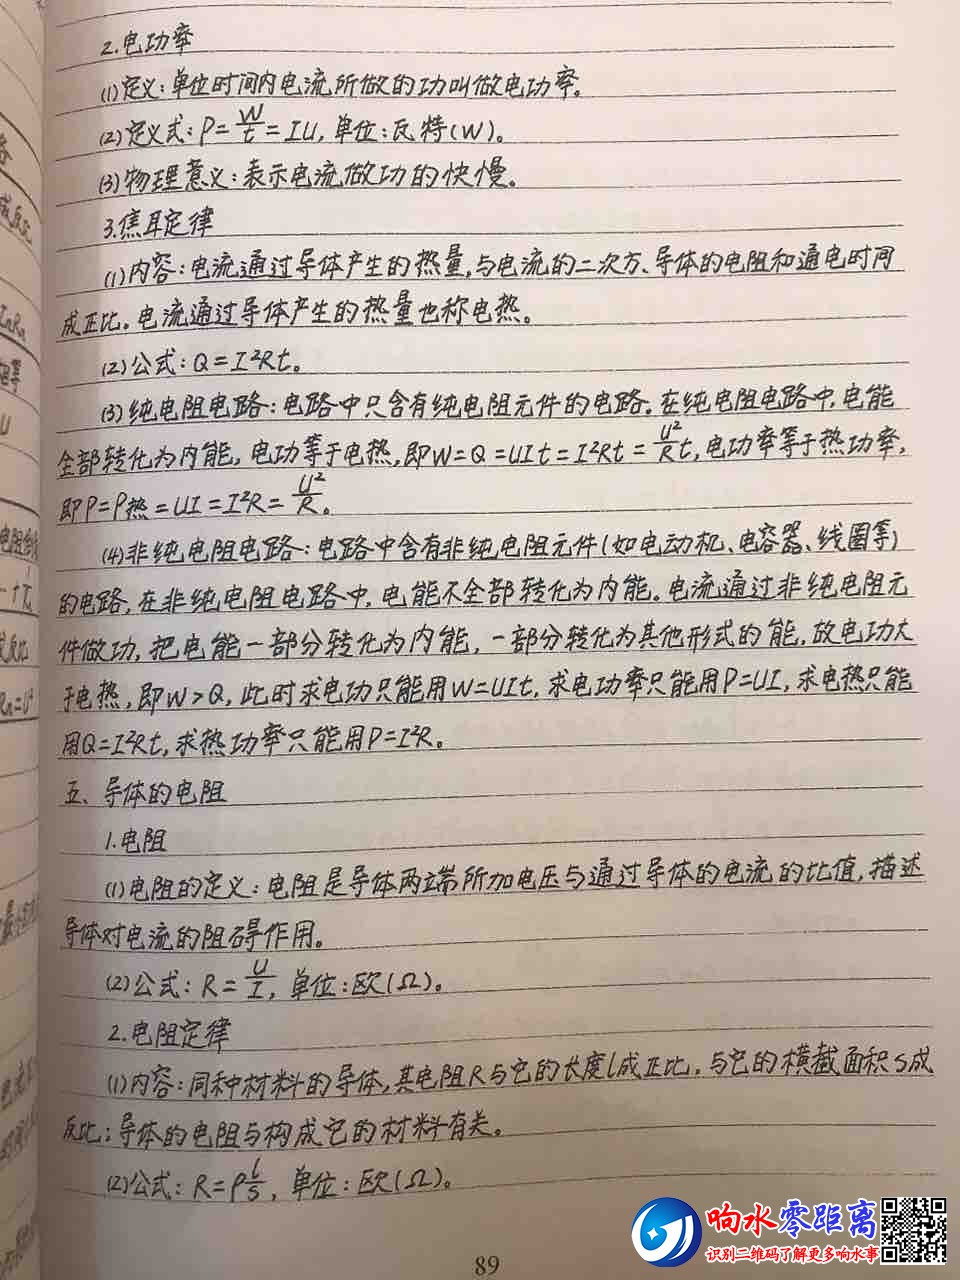 2.电功率
(1)定义:单位时间内电流所做的功叫做电功率。
(2)定义式:P=W/t=IU,单位:瓦特(W)。
(3)物理意义:表示电流做功的快慢。
3.焦耳定律
(1)内容:电流通过导体产生的热量,与电流的二次方、导体的电阻和通电时间
成正比。电流通过导体产生的热量也称电热。
(2)公式:Q=I²Rt。
(3)纯电阻电路:电路中只含有纯电阻元件的电路。在纯电阻电路中,电能
全部转化为内能,电功等于电热,即W=Q=UIt=I²Rt=U²/Rt,电功率等于热功率,
即P=P热=UI=I²R=U²/R。
(4)非纯电阻电路:电路中含有非纯电阻元件(如电动机、电容器、线圈等)
的电路,在非纯电阻电路中,电能不全部转化为内能。电流通过非纯电阻元
件做功,把电能一部分转化为内能,一部分转化为其他形式的能,故电功大
于电热,即W>Q,此时求电功只能用W=UIt,求电功率只能用P=UI,求电热只能
用Q=I²Rt,求热功率只能用P=I²R。
五、导体的电阻
1.电阻
(1)电阻的定义:电阻是导体两端所加电压与通过导体的电流的比值,描述
导体对电流的阻碍作用。
(2)公式:R=U/I,单位:欧(Ω)。
2.电阻定律
(1)内容:同种材料的导体,其电阻R与它的长度l成正比,与它的横截面积S成
反比;导体的电阻与构成它的材料有关。
(2)公式:R=ρl/S,单位:欧(Ω)。
89
响水零距离
识别二维码了解更多响水事